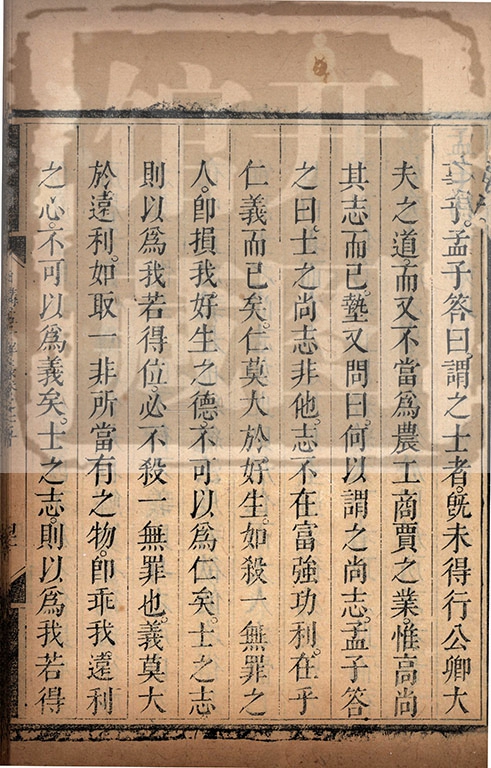 事乎。孟子答曰。謂之士者。旣未得行公卿大
夫之道。而又不當爲農工商賈之業。惟高尚
其志而已。墊又問曰。何以謂之尚志。孟子答
之曰。士之尚志非他。志不在富強功利。在乎
仁義而已矣。仁莫大於好生。如殺一無罪之
人。卽損我好生之德。不可以爲仁矣。士之志
則以爲我若得位。必不殺一無罪也。義莫大
於遠利。如取一非所當有之物。卽乖我遠利
之心。不可以爲義矣。士之志。則以爲我若得